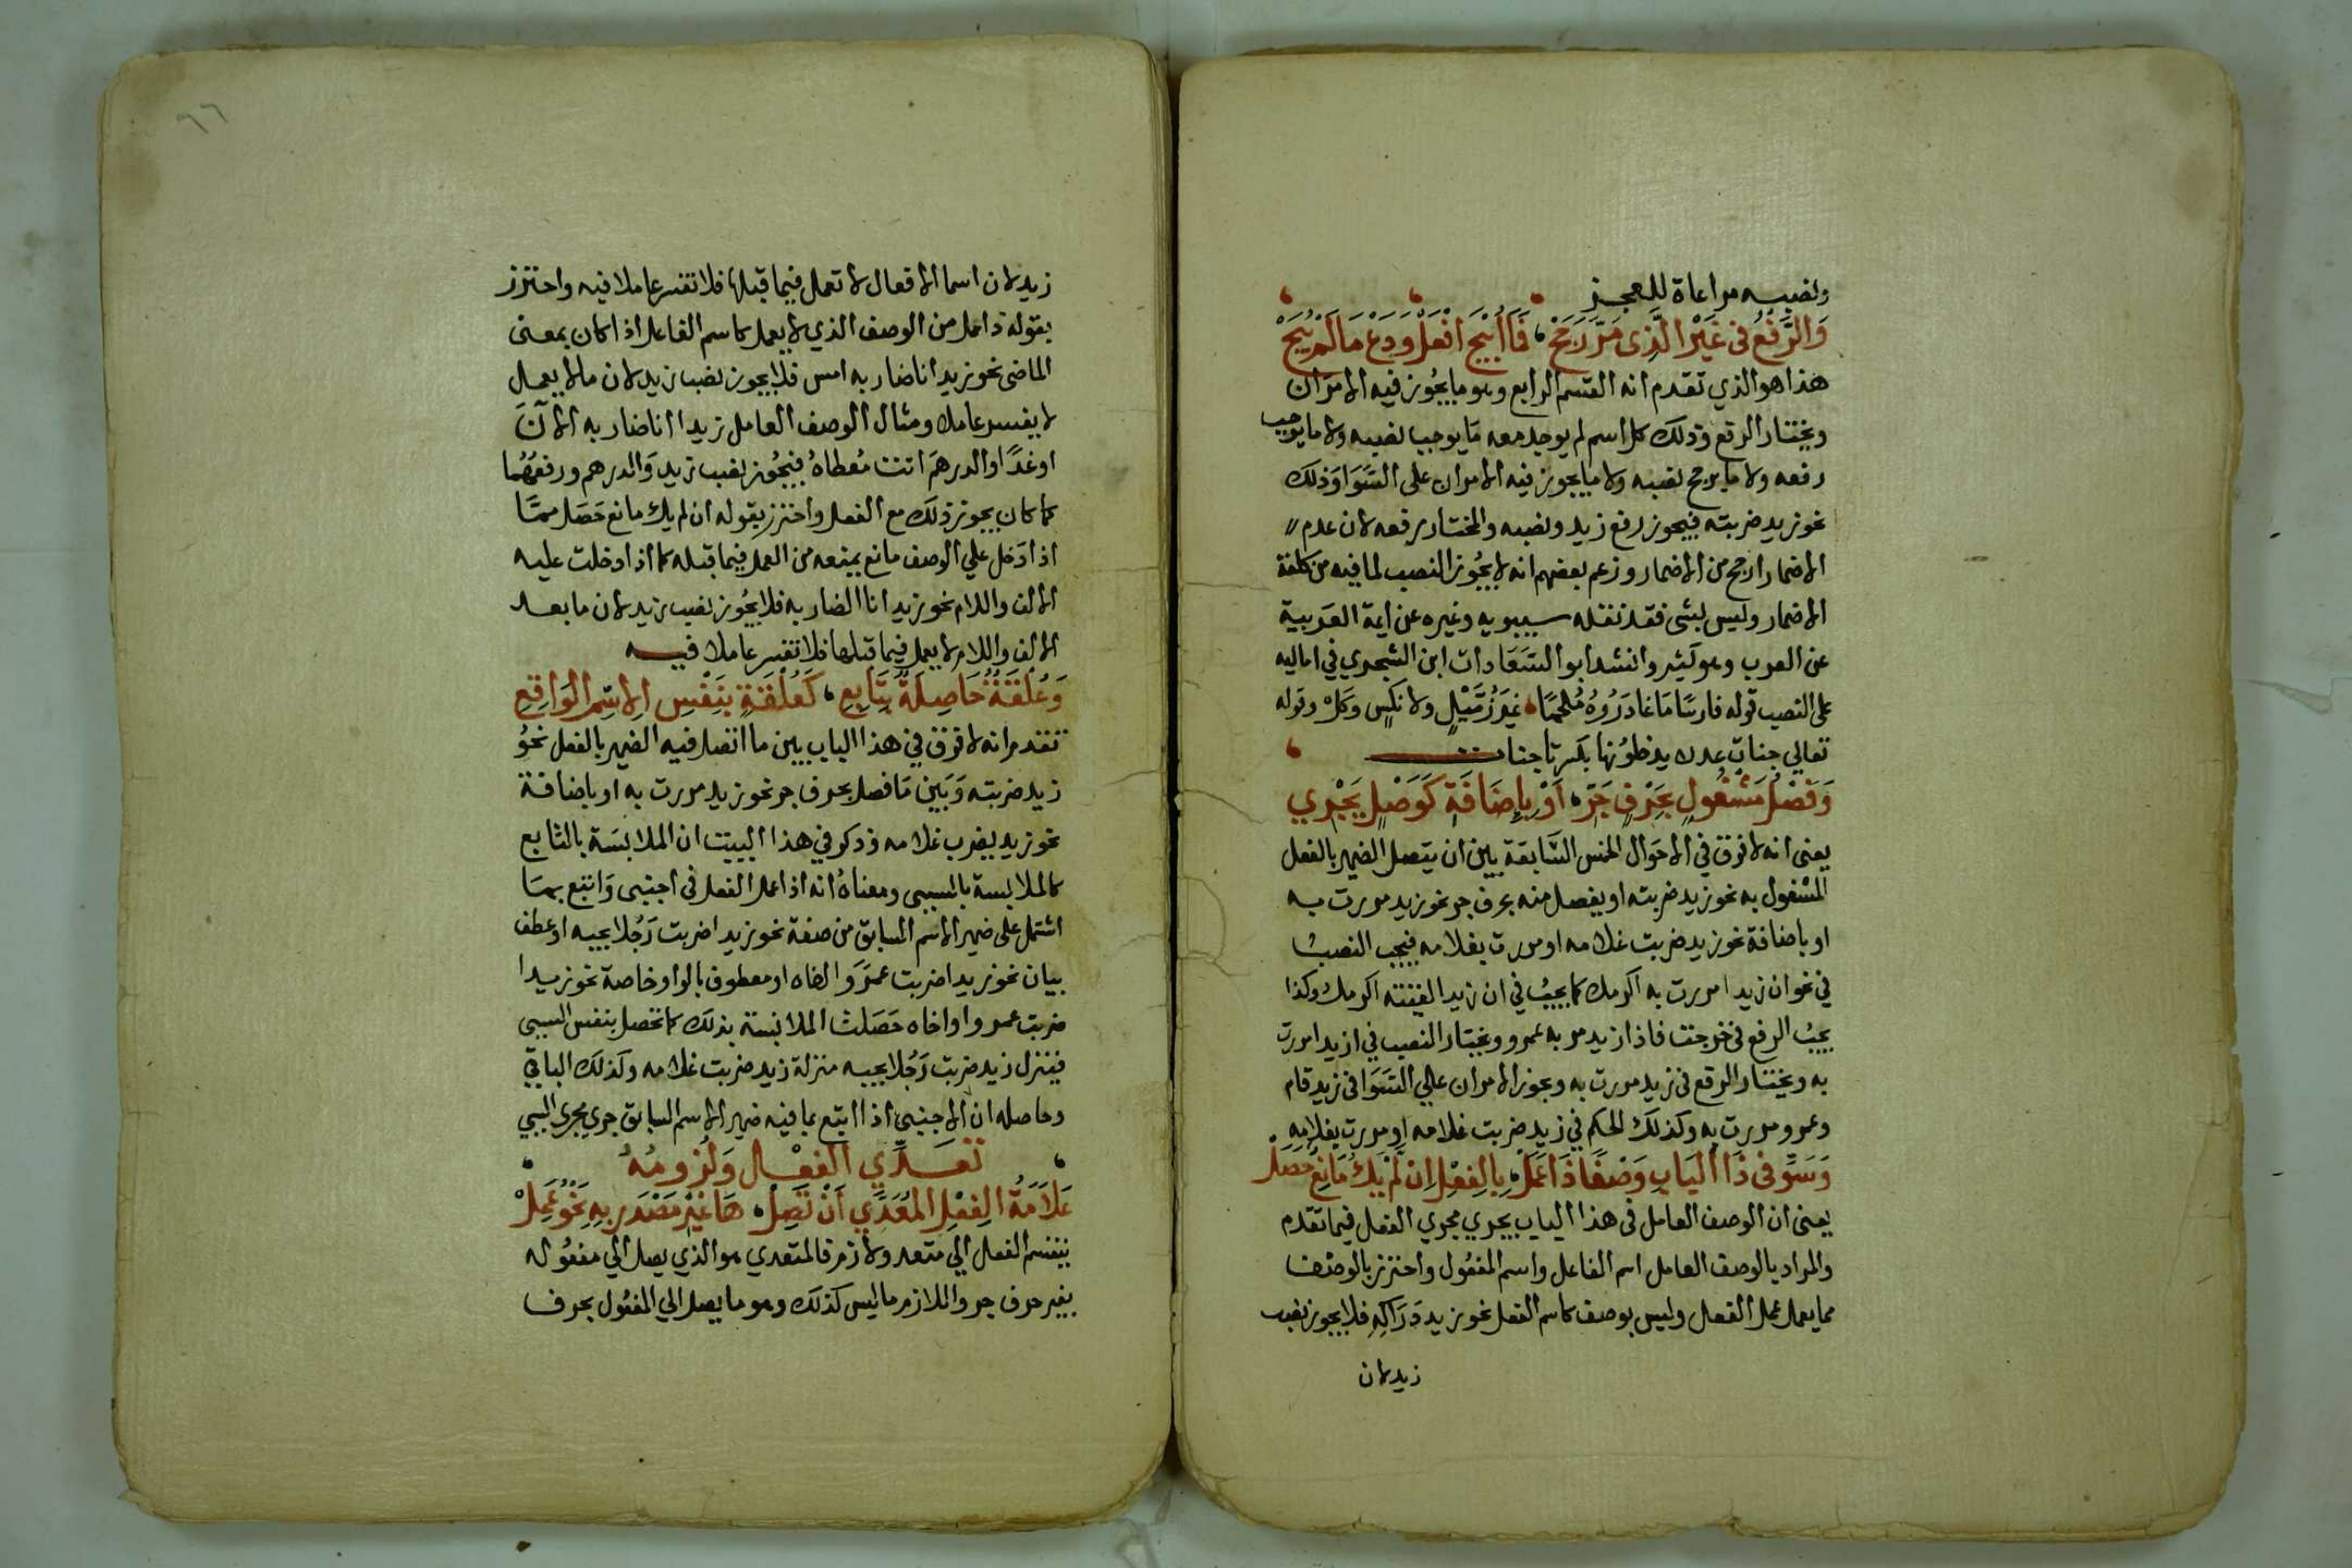 ونصبه مراعاة للعجز
وَالرَّفْعُ فى غَيْرِ الَّذِى مَرَّ رَجَحْ فَمَا أُبِيْحَ افْعَلْ وَدَعْ مَا لَمْ يُبَحْ
هذا هو الذي تقدم انه القسم الرابع وهو ما يجُوز فيه الامران
ويختار الرفع وذلك كل اسم لم يوجد معه مَا يوجب نصبه ولا ما يوجب
رفعه ولا ما يرجح نصبه ولا ما يجوز فيه الامران على السَّوَا وَذلك
نحو زيد ضربته فيجوز رفع زيد ونصبه والمختار رفعه لان عدم
الاضمار ارجح من الاضمار وزعم بعضهم انه لا يجُوز النصب لما فيه من كلفة
الاضمار وليس بشى فقد نقله سيبويه وغيره عن ايمة العَربية
عن العرب وهو كثير وانشد ابو السَّعَادات ابن الشجري في اماليه
على النصب قوله فارسًا مَا غادَرُوهُ مُلْحَمًا غيَر زُمَّيْلٍ ولا نكسٍ وَكَلْ وقوله
تعالى جناتِ عدن يدخلوُنها بكسر تا جنات
وَفَصْلُ مَشْغُولٍ بِحَرْفِ جَرِّ أَوْ بِإِضَافَةٍ كَوَصْلٍ يَجْرِي
يعنى انه لا فرق في الاحَوال الخمس السَّابقة بين ان يتصل الضمير بالفعل
المشغول به نحو زيد ضربته او ينفصل منه بحرف جر نحو زيد مررت به
او باضافة نحو زيد ضربت غلامه او مررت بغلامه فيجب النصبُ
في نحو ان زيدا مررت به اكرمك كما يجبُ في ان زيدا لقيته اكرمك وكذا
يجبُ الرفع فى خرجت فاذا زيد مر به عمرو ويختار النصب في ازيدا مررت
به ويختار الرفع فى زيد مررت به ويجوز الامران على السَّوَا فى زيد قام
وعمرو مررت به وكذلك الحكم في زيد ضربت غلامه او مررت بغلامه
وَسَوِّ فى ذَا الْبَابِ وَصْفًا ذَا عَمَلْ بِالفِعْلِ اِن لَّمْ يَكُ مَانِعٌ حَصَلْ
يعنى ان الوصف العامل فى هذا الباب يجري مجري الفعل فيما تقدم
والمراد بالوصف العامل اسم الفاعل واسم المفعُول واحترز بالوصف
مما يعمل عمل الفعل وليس بوصف كاسم الفعل نحو زيد دَرَاكِهِ فلا يجوز نصب
زيد لان
٩٦
زيد لان اسما الافعال لا تعمل فيما قبلها فلا تفسر عاملا فيه واحترز
بقوله ذا عمل من الوصف الذي لا يعمل كاسم الفاعل اذا كان بمعنى
الماضى نحو زيد انا ضاربه امس فلا يجوز نصب زيد لان ما لا يعمل
لا يفسر عاملا ومثال الوصف العامل زيدا انا ضاربه الآنَ
او غدًا والدرهمَ انت مُعطاهُ فيجُوز نصب زيد وَالدرهم ورفعهُما
كما كان يجوز ذلك مع الفعل واحترز بقوله ان لم يك مانع حَصَل ممَّا
اذا دَخل علي الوصف مانع يمنعه من العمل فيما قبله كما اذا دخلت عليه
الالف واللام نحو زيد انا الضاربه فلا يجُوز نصب زيد لان ما بعد
الالف واللام لا يعمل فيما قبلها فلا تفسر عاملا فيه
وَعُلْقَةٌ حَاصِلَةٌ بِتَابِعِ كَعُلْقَةٍ بِنَفْسِ الاِسْمِ الوَاقِعِ
تقدم انه لا فرق في هذا الباب بين ما اتصل فيه الضمير بالفعل نحُو
زيد ضربته وَبَين مَا فصل بحرف جر نحو زيد مررت به او باضافة
نحو زيد يضرب غلامه وذكر في هذا البيت ان الملابسَة بالتابع
كالملابسة بالسببى ومعناهُ انه اذا عمل الفعل فى اجنبى وَاتبع بمَا
اشتمل على ضمير الاسم السابق من صفة نحو زيدا ضربت رَجُلا يحبه او عطف
بيان نحو زيدا ضربت عمرَوا اخاه او معطوف بالواو خاصة نحو زيدا
ضربت عمروا واخاه حَصَلت الملابسة بذلك كما تحصل بنفس السببى
فينزل زيد ضربت رَجُلا يحبه منزلة زيد ضربت غلامه وكذلك الباقي
وحاصله ان الاجنبى اذا اتبع بما فيه ضمير الاسم السابق جري مجري السببي
تعَدِّي الفعْل وَلُزومُهُ
عَلاَمَةُ الفِعْلِ المُعَدَّي أَنْ تَصِلْ هَا غَيْرِ مَصْدَرٍ بِهِ نَحْوُ عَمِلْ
ينقسم الفعل الي متعد ولازم فالمتعدي هو الذي يصل الي مفعُوله
بغير حرف جر واللازم ما ليس كذلك وهو ما يصل الي المفعُول بحرف